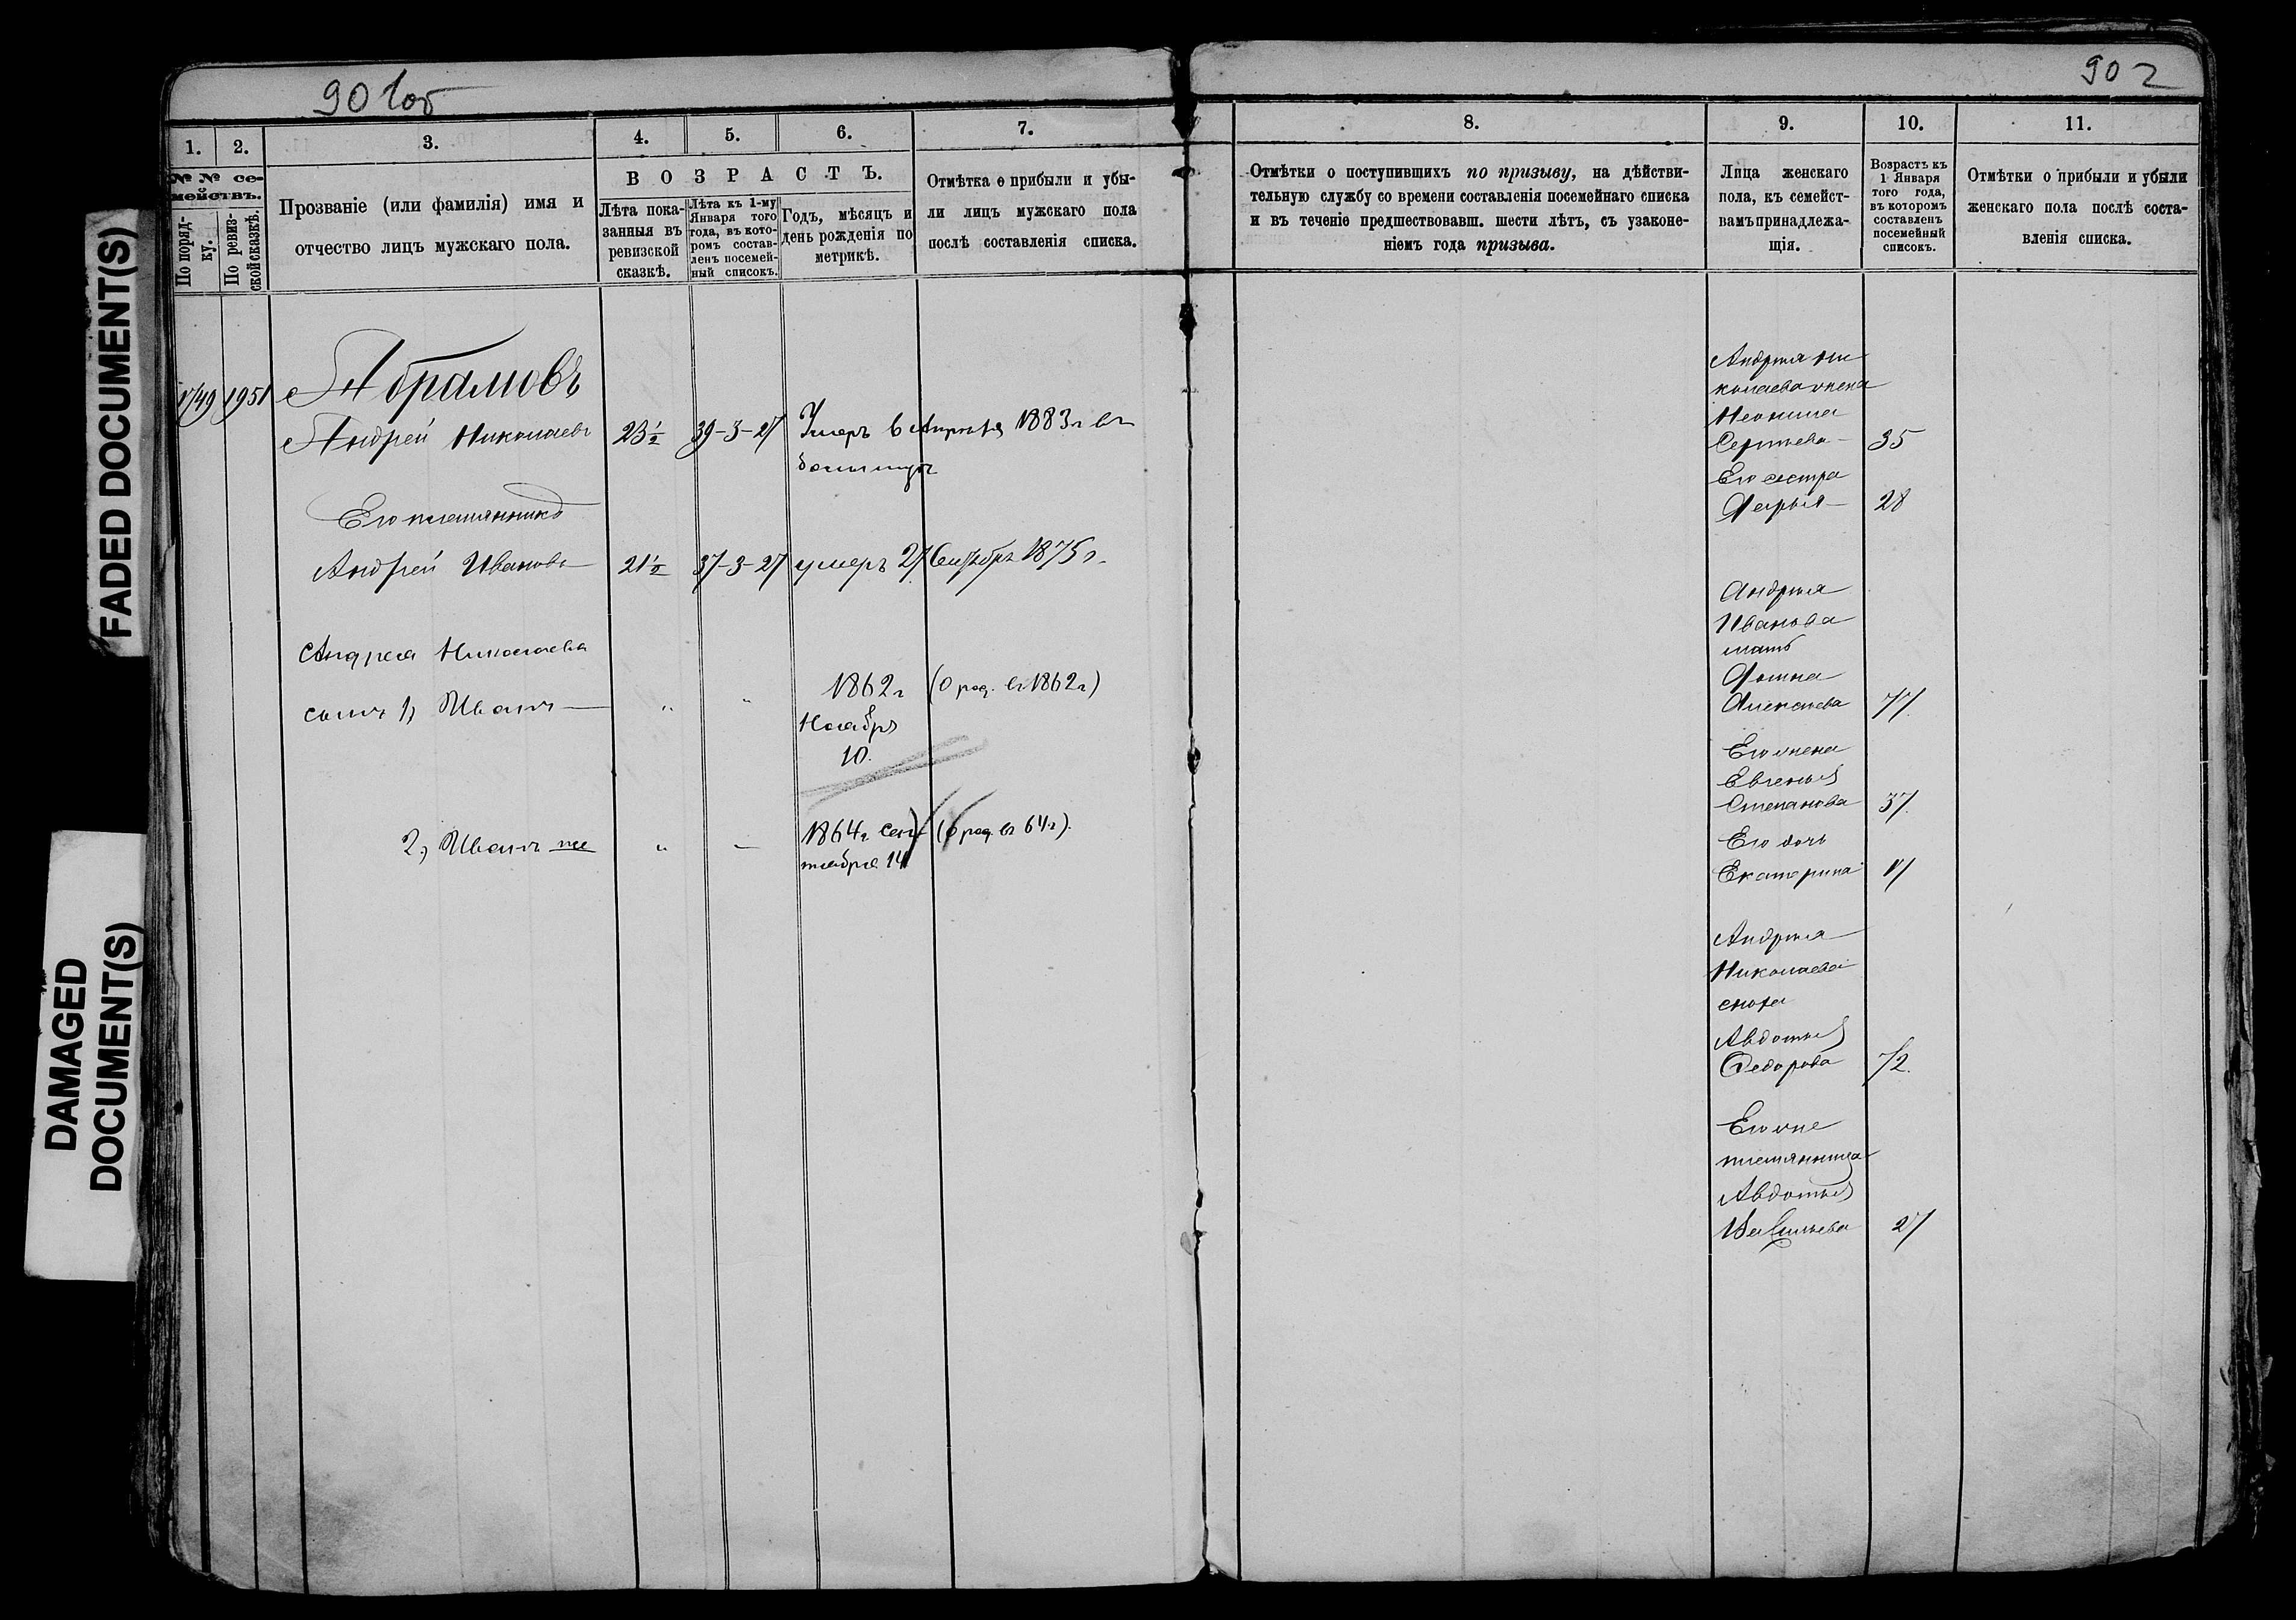 FADED DOCUMENT(S)
DAMAGED
DOCUMENT(S)
901об
902
1.
2.
3.
4.
5.
6.
7.
8.
9.
10.
11.
№ № се-
мействъ.
По поряд-
ку.
По ревиз-
ской сказкѣ.
Прозваніе (или фамилія) имя и
отчество лицъ мужскаго пола.
ВОЗРАСТЪ.
Лѣта пока-
занныя въ
ревизской
сказкѣ.
Лѣта къ 1-му
Января того
года, въ кото-
ромъ состав-
ленъ посемей-
ный списокъ.
Годъ, мѣсяцъ и
день рожденія по
метрикѣ.
Отмѣтка о прибыли и убы-
ли лицъ мужскаго пола
послѣ составленія списка.
Отмѣтки о поступившихъ по призыву, на дѣйстви-
тельную службу со времени составленія посемейнаго списка
и въ теченіе предшествовавш. шести лѣтъ, съ узаконе-
ніемъ года призыва.
Лица женскаго
пола, къ семейст-
вамъ принадлежа-
щія.
Возрастъ къ
1 Января
того года,
въ которомъ
составленъ
посемейный
списокъ.
Отмѣтки о прибыли и убыли
женскаго пола послѣ соста-
вленія списка.
1749 1951 Абрамовъ
Андрей Николаевъ 23½ 39-3-27 Умеръ 6 Апрѣля 1883 г въ
больницѣ
Его племянникъ
Андрей Ивановъ 21½ 37-3-27 умеръ 27 Сентября 1875 г.
Андрея Николаева
сынъ 1, Иванъ — " " 1862 г (О род. въ 1862 г)
Ноябрь
10.
2, Иванъ же " — 1864 г. Сен- (О род. въ 64 г).
тября 14
Андрея Ни-
колаева жена
Неонила
Сергѣева — 35
Его сестра
Дарья — 28
Андрея
Иванова
мать
Фотина
Алексѣева 77.
Его жена
Евгенья
Степанова 37.
Его дочь
Екатерина 17
Андрея
Николаева
сноха
Авдотья
Федорова 72.
Его же
племянница
Авдотья
Васильева 27